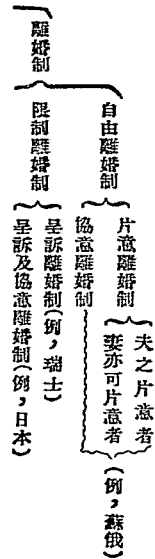 離婚制
自由離婚制
片意離婚制
夫之片意者
妻亦可片意者
協意離婚制
(例，蘇俄)
限制離婚制
呈訴離婚制(例，瑞士)
呈訴及協意離婚制(例，日本)